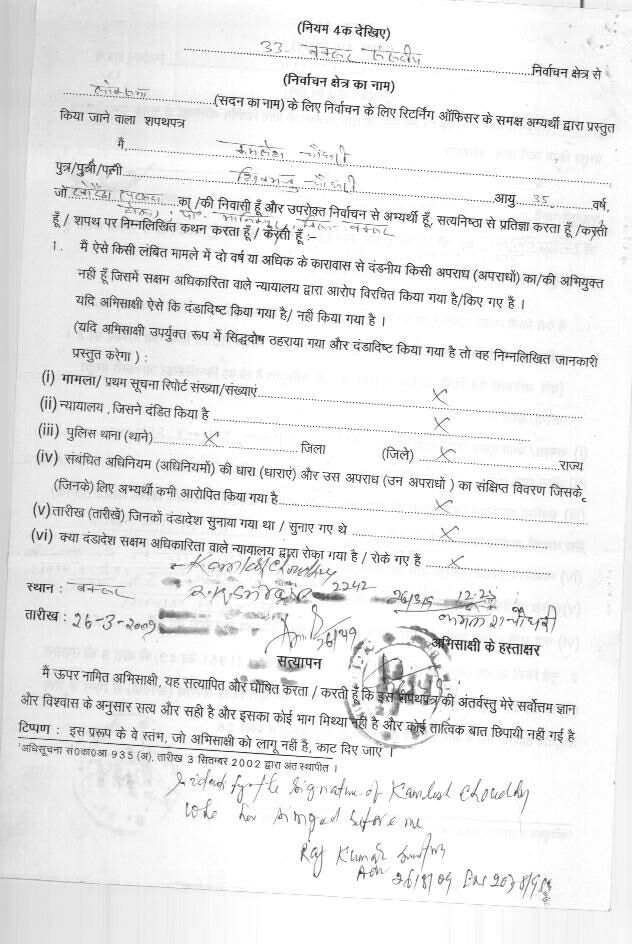 (नियम 4क देखिए)
33. बक्सर संसदीय निर्वाचन क्षेत्र से
(निर्वाचन क्षेत्र का नाम)
लोकसभा (सदन का नाम) के लिए निर्वाचन के लिए रिटर्निंग ऑफिसर के समक्ष अभ्यर्थी द्वारा प्रस्तुत
किया जाने वाला शपथपत्र
मैं, कमलेश चौधरी
पुत्र/पुत्री/पत्नी शिवमन्नु चौधरी आयु 35 वर्ष,
जो का /की निवासी हूँ और उपरोक्त निर्वाचन से अभ्यर्थी हूँ, सत्यनिष्ठा से प्रतिज्ञा करता हूँ /करती
हूँ / शपथ पर निम्नलिखित कथन करता हूँ / करती हूँ :-
1. मैं ऐसे किसी लंबित मामले में दो वर्ष या अधिक के कारावास से दंडनीय किसी अपराध (अपराधों) का/की अभियुक्त
नहीं हूँ जिसमें सक्षम अधिकारिता वाले न्यायालय द्वारा आरोप विरचित किया गया है/किए गए हैं ।
यदि अभिसाक्षी ऐसे कि दंडादिष्ट किया गया है/ नहीं किया गया है ।
(यदि अभिसाक्षी उपर्युक्त रूप में सिद्धदोष ठहराया गया और दंडादिष्ट किया गया है तो वह निम्नलिखित जानकारी
प्रस्तुत करेगा ) :
(i) मामला/ प्रथम सूचना रिपोर्ट संख्या/संख्याएं X
(ii) न्यायालय , जिसने दंडित किया है X
(iii) पुलिस थाना (थाने) X जिला (जिले) X राज्य
(iv) संबंधित अधिनियम (अधिनियमों) की धारा (धाराएं) और उस अपराध (उन अपराधों ) का संक्षिप्त विवरण जिसके
(जिनके) लिए अभ्यर्थी कभी आरोपित किया गया है X
(v) तारीख (तारीखें) जिनकों दंडादेश सुनाया गया था / सुनाए गए थे X
(vi) क्या दंडादेश सक्षम अधिकारिता वाले न्यायालय द्वारा रोका गया है / रोके गए हैं X
Kamlesh Choudhry
स्थान : बक्सर 2242 26/3/9
तारीख : 26-3-2009 कमलेश चौधरी
अभिसाक्षी के हस्ताक्षर
सत्यापन
मैं ऊपर नामित अभिसाक्षी, यह सत्यापित और घोषित करता / करती हूँ कि इस शपथपत्र की अंतर्वस्तु मेरे सर्वोत्तम ज्ञान
और विश्वास के अनुसार सत्य और सही है और इसका कोई भाग मिथ्या नहीं है और कोई तात्विक बात छिपायी नहीं गई है
टिप्पण : इस प्ररूप के वे स्तंभ, जो अभिसाक्षी को लागू नहीं हैं, काट दिए जाएं ।
¹अधिसूचना सं0का0आ 935 (अ), तारीख 3 सितम्बर 2002 द्वारा अंत स्थापीत ।
the signature of Kamlesh Choudhry
who has singed before me
Raj Kumar
Adv 26/3/09